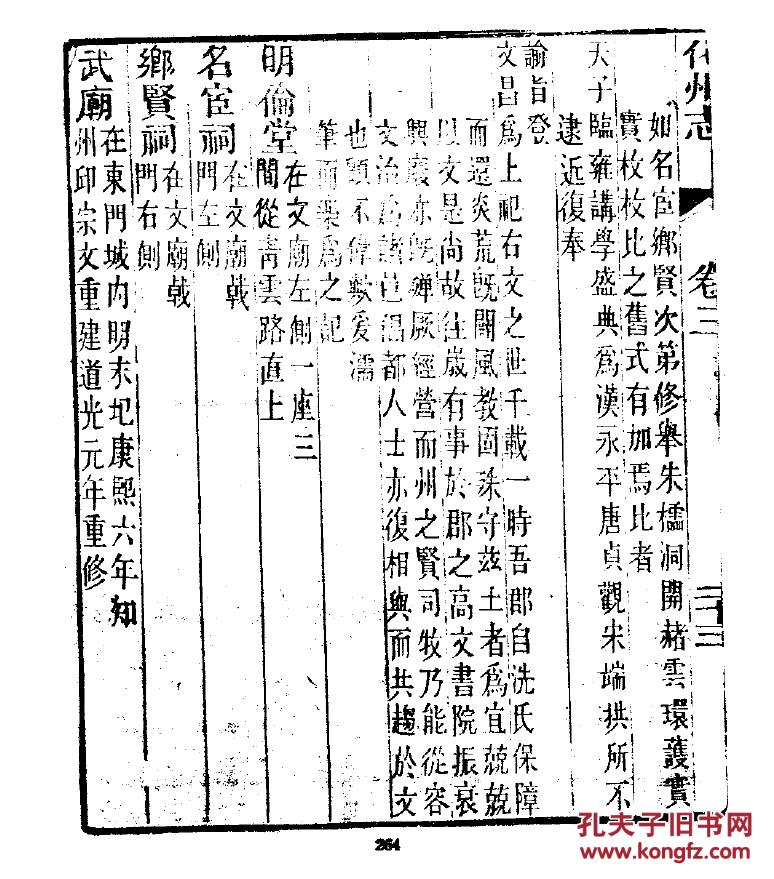 化州志
卷三
二十三
如名宦鄉賢次第修舉朱櫺洞開赭雲環護實
實枚枚比之舊式有加焉比者
天子臨雍講學盛典為漢永平唐貞觀宋端拱所不
逮近復奉
諭旨登
文昌為上祀右文之世千載一時吾郡自洗氏保障
而還炎荒既闢風教固殊守茲土者為宜兢兢
以文是尚故往歲有事於郡之高文書院振衰
興廢亦既殫厥經營而州之賢司牧乃能從容
文治為諸邑倡都人士亦復相與而共趨於文
也顧不偉歟爰濡
筆而樂為之記
明倫堂在文廟左側一座三
間從靑雲路直上
名宦祠在文廟戟
門左側
鄉賢祠在文廟戟
門右側
武廟在東門城內明末圮康熙六年知
州邱宗文重建道光元年重修
264
孔夫子旧书网
www.kongfz.com